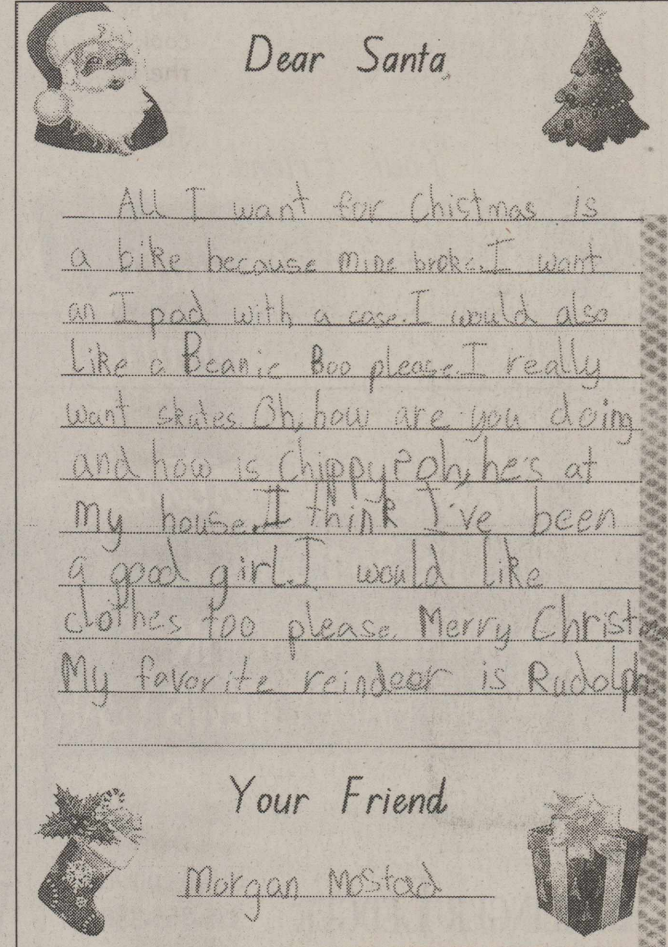 Dear Santa,
All I want for Chistmas is
a bike because mine broke. I want
an I pad with a case. I would also
like a Beanie Boo please. I really
want skates. Oh, how are you doing
and how is Chippy? Oh, he's at
my house. I think I've been
a good girl. I would like
clothes too please. Merry Christm
My favorite reindeer is Rudolph
Your Friend
Morgan Mostad